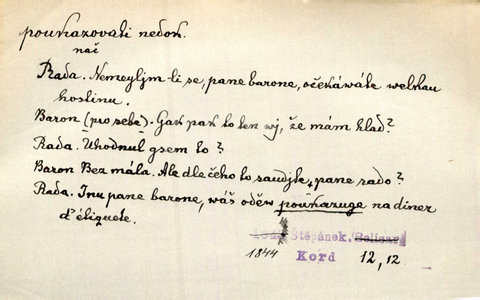 poukazovati nedok.
nač
Rada. Nemeyljm-li se, pane barone, očekáwáte welkau
hostinu.
Baron (pro sebe). Gak pak to ten wj, že mám hlad?
Rada. Uhodnul gsem to?
Baron Bez mála. Ale dle čeho to saudjte, pane rado?
Rada. Inu pane barone, wáš oděw poukazuge na diner
d'étiquete.
Štěpánek. Belisar
1844 Kord 12, 12